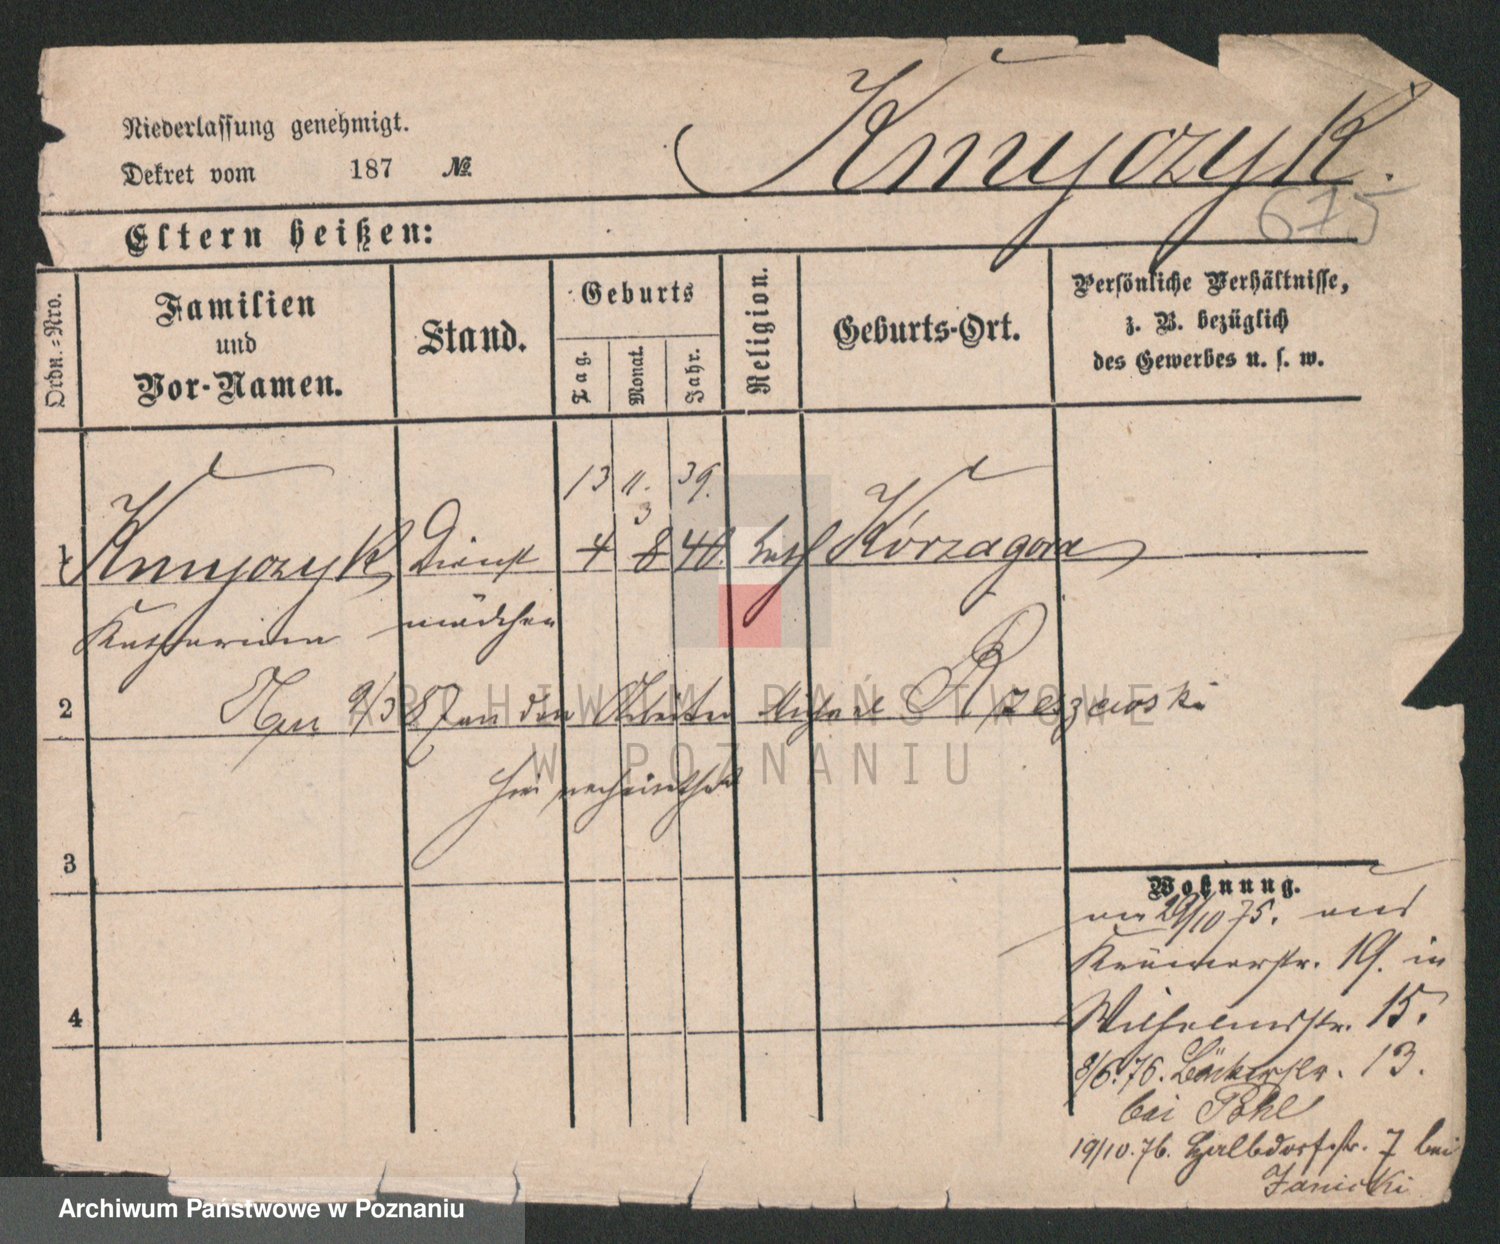 Niederlassung genehmigt.
Dekret vom 187 №
Knyczyk.
675
Eltern heißen:
Ordn.=Nro.
Familien
und
Vor-Namen.
Stand.
Geburts
Tag.
Monat.
Jahr.
Religion.
Geburts-Ort.
Persönliche Verhältnisse,
z. B. bezüglich
des Gewerbes u. s. w.
13 11. 39.
3
1 Dienst 4 8 40. kath Kórzagora
Katharina mädchen
2 9/3 87 an den Arbeiter Michael Rzeszewski
hier verheirathet
3
Wohnung.
am 29/10 75. aus
Krämerstr. 19. in
4 Wilhelmstr. 15.
8/6. 76. Bäckerstr. 13.
bei Pohl
19/10. 76. Halbdorfstr. 7 bei
Janicki
ARCHIWUM PAŃSTWOWE
W POZNANIU
Archiwum Państwowe w Poznaniu